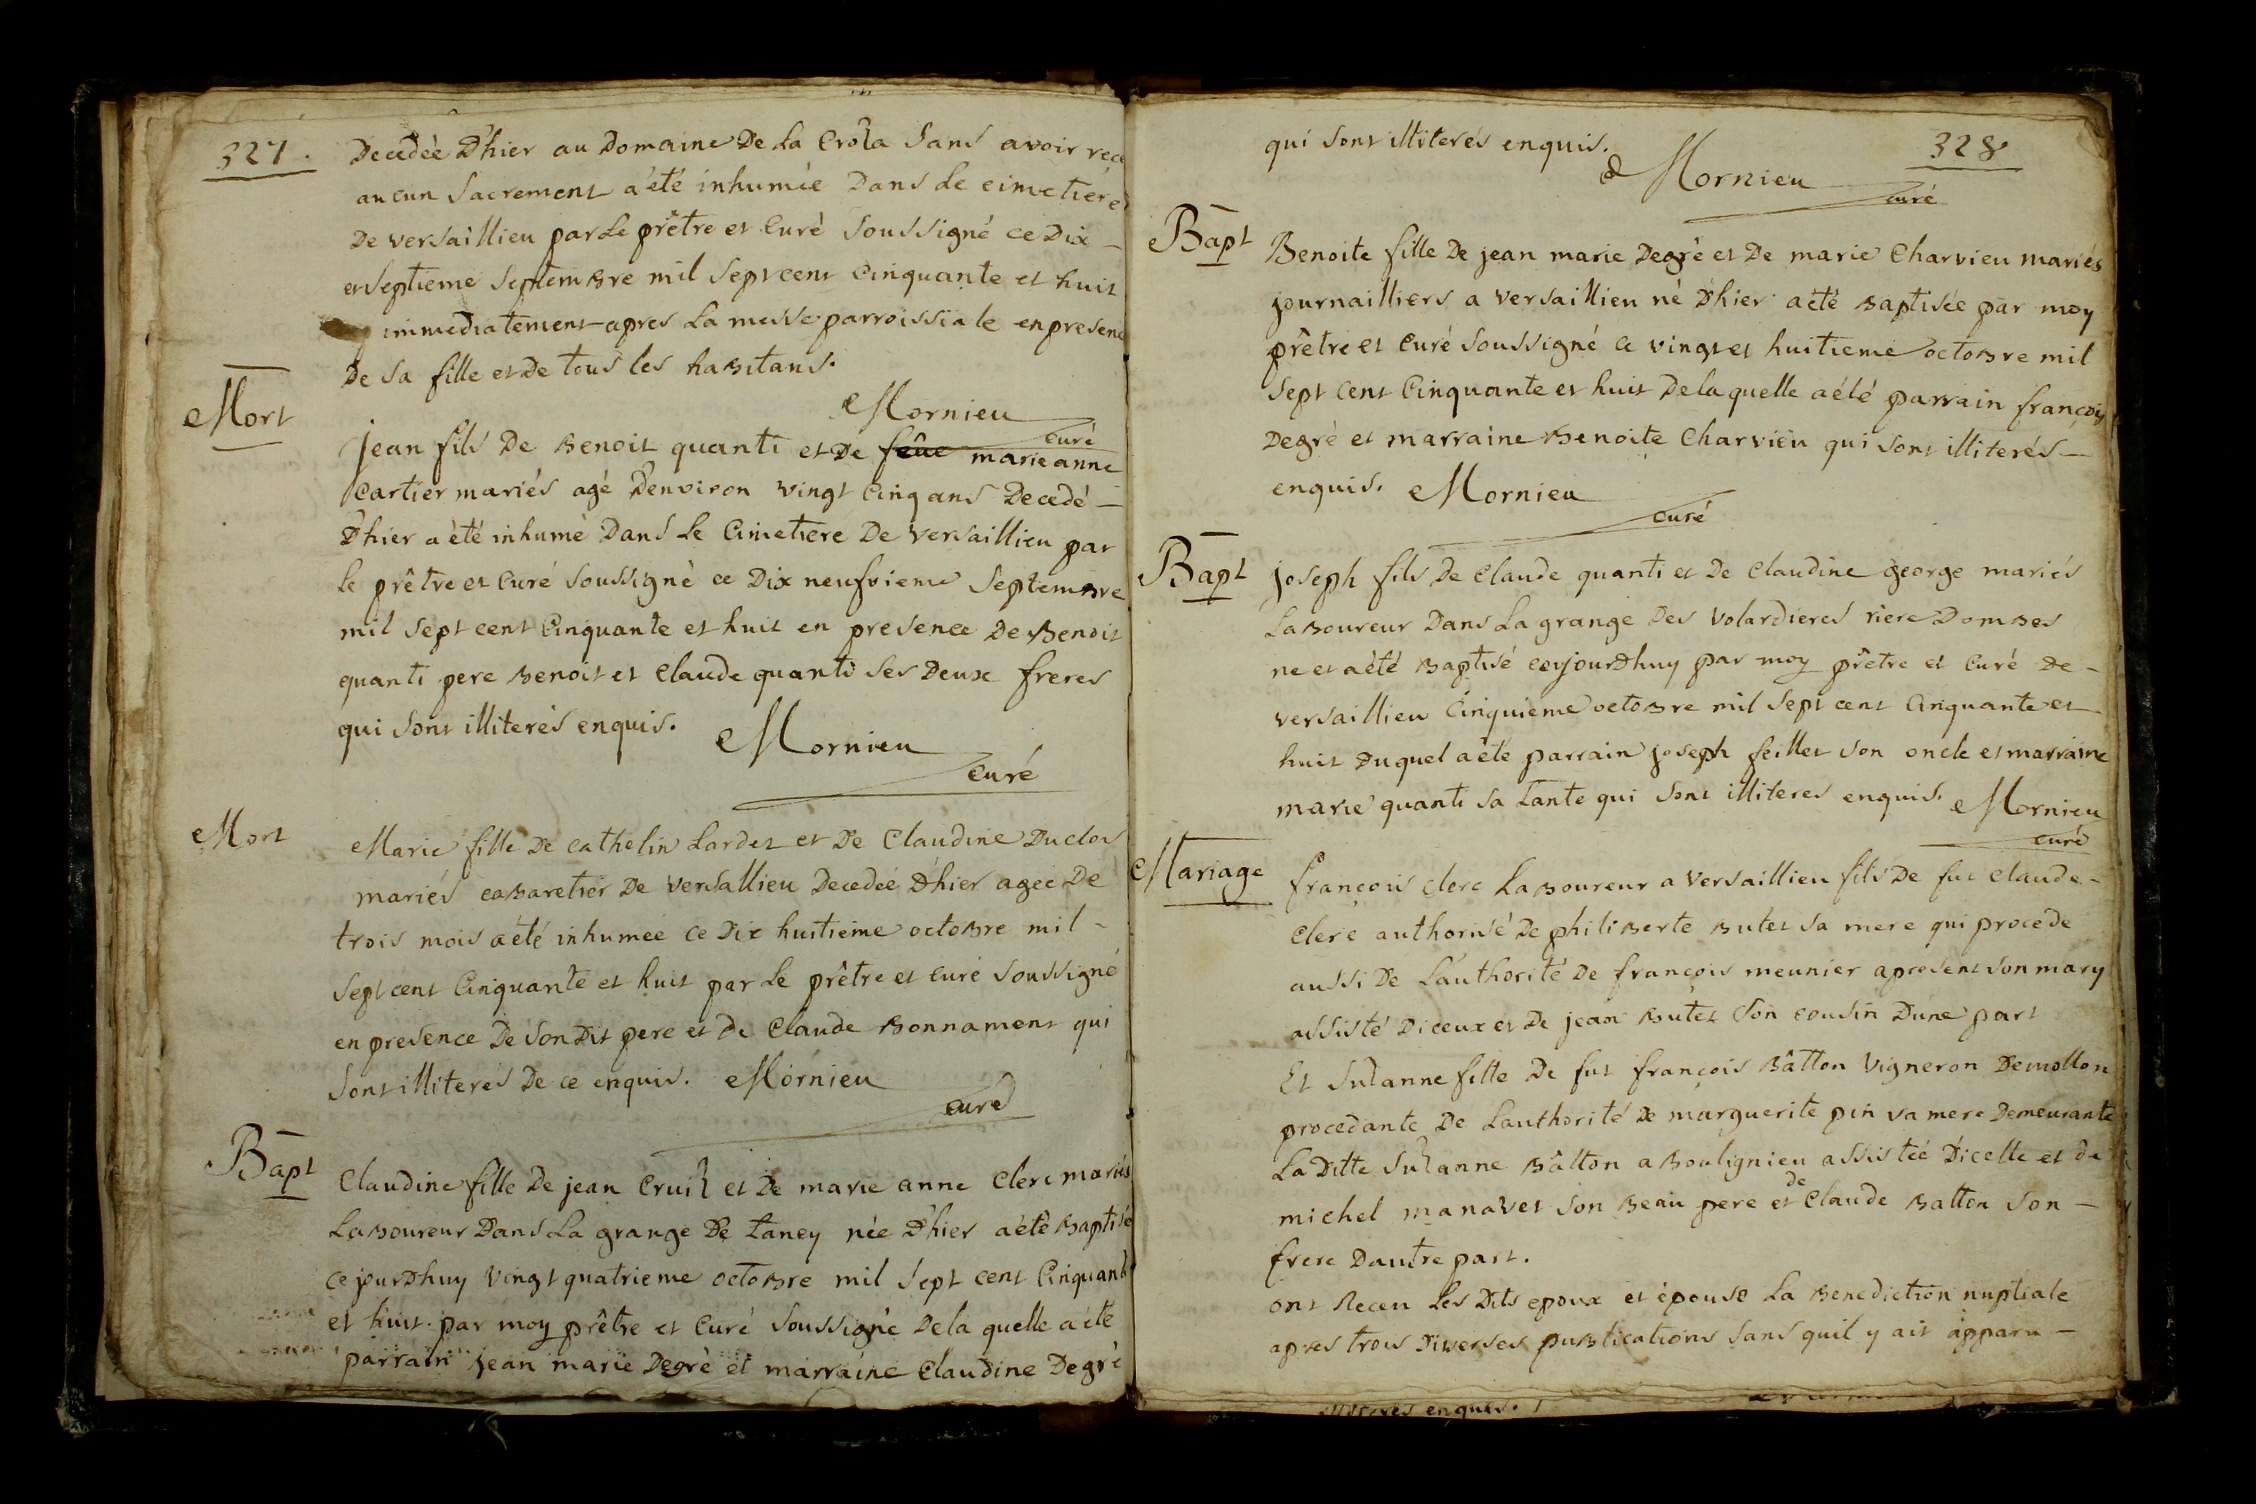 327.
Decedèe D'hier au Domaine De La Crôla Sans avoir rece
aucun Sacrement a été inhumée Dans Le cimetiére
De versaillieu par Le prêtre et Curé Soussigné ce Dix
et Septieme Septembre mil Sept cent Cinquante et huit
immediatement apres La messe parroissiale en presenc
De Sa fille et De tous les habitans.
Mornieu
curé
Mort
jean fils De Benoit quanti et De feüe marie anne
Cartier mariés agé D'environ vingt Cinq ans Decedé
D'hier a été inhumè Dans Le Cimetiere De Versaillieu par
Le prêtre et Curé Soussigné ce Dix neufvieme Septembre
mil Sept cent Cinquante et huit en presence De Benoit
quanti pere Benoit et Claude quanti Ses Deux freres
qui Sont illiterès enquis.
Mornieu
curé
Mort
Marie fille De Cathelin Lardet et De Claudine Duclos
mariés cabaretier De Versallieu Decedeé D'hier ageé De
trois mois a été inhumeé ce Dix huitieme octobre mil
Sept cent Cinquante et huit par Le prêtre et curé Soussigné
en presence De Son Dit pere et De Claude Bonnament qui
Sont illiterés De ce enquis. Mornieu
curé
Bapt
Claudine fille De jean Cruiz et De marie anne Clerc mariés
Laboureur Dans La grange De taney née D'hier a été Baptisé
ce jourDhuy Vingt quatrieme octobre mil Sept cent Cinquante
et huit par moy prêtre et Curé Soussignè De la quelle a été
parrain jean marie Degrè et marraine Claudine Degrè
328
qui Sont illiterés enquis.
Mornieu
curé
Bapt
Benoite fille De jean marie Degrè et De marie Charvieu mariés
journailliers a versaillieu né D'hier a été Baptisée par moy
prêtre et Curé Soussigné ce vingt et huitieme octobre mil
Sept cent Cinquante et huit De la quelle a été parrain françois
Degrè et marraine Benoite Charvieu qui Sont illiterés
enquis. Mornieu
curé
Bapt
joseph fils De Claude quanti et De Claudine george mariés
Laboureur Dans La grange Des Volardieres riere Dombes
ne et a été Baptisé cejourDhuy par moy prêtre et Curé De
versaillieu Cinquieme octobre mil Sept cent Cinquante et
huit Duquel a éte parrain joseph feillet Son oncle et marraine
marie quanti Sa tante qui Sont illiteres enquis. Mornieu
curé
Mariage
françois Clerc Laboureur a Versaillieu fils De fut Claude
Clerc authorisé De philiberte Butet Sa mere qui procede
aussi De L'authorité De françois meunier apresent Son mary
assisté Diceux et De jean Butet Son cousin D'une part
Et Suzanne fille De fut françois Bâtton Vigneron De mollon
procedante De Lauthorité De marguerite pin Sa mere Demeurante
La Ditte Suzanne Bâtton a Boulignieu assistée Dicelle et De
michel manavet Son Beau pere et de Claude Batton Son
frere Dautre part.
ont Receu Les Dits epoux et épouse La Benediction nuptiale
apres trois Diverses publications Sans quil y ait apparu
illiterés enquis.